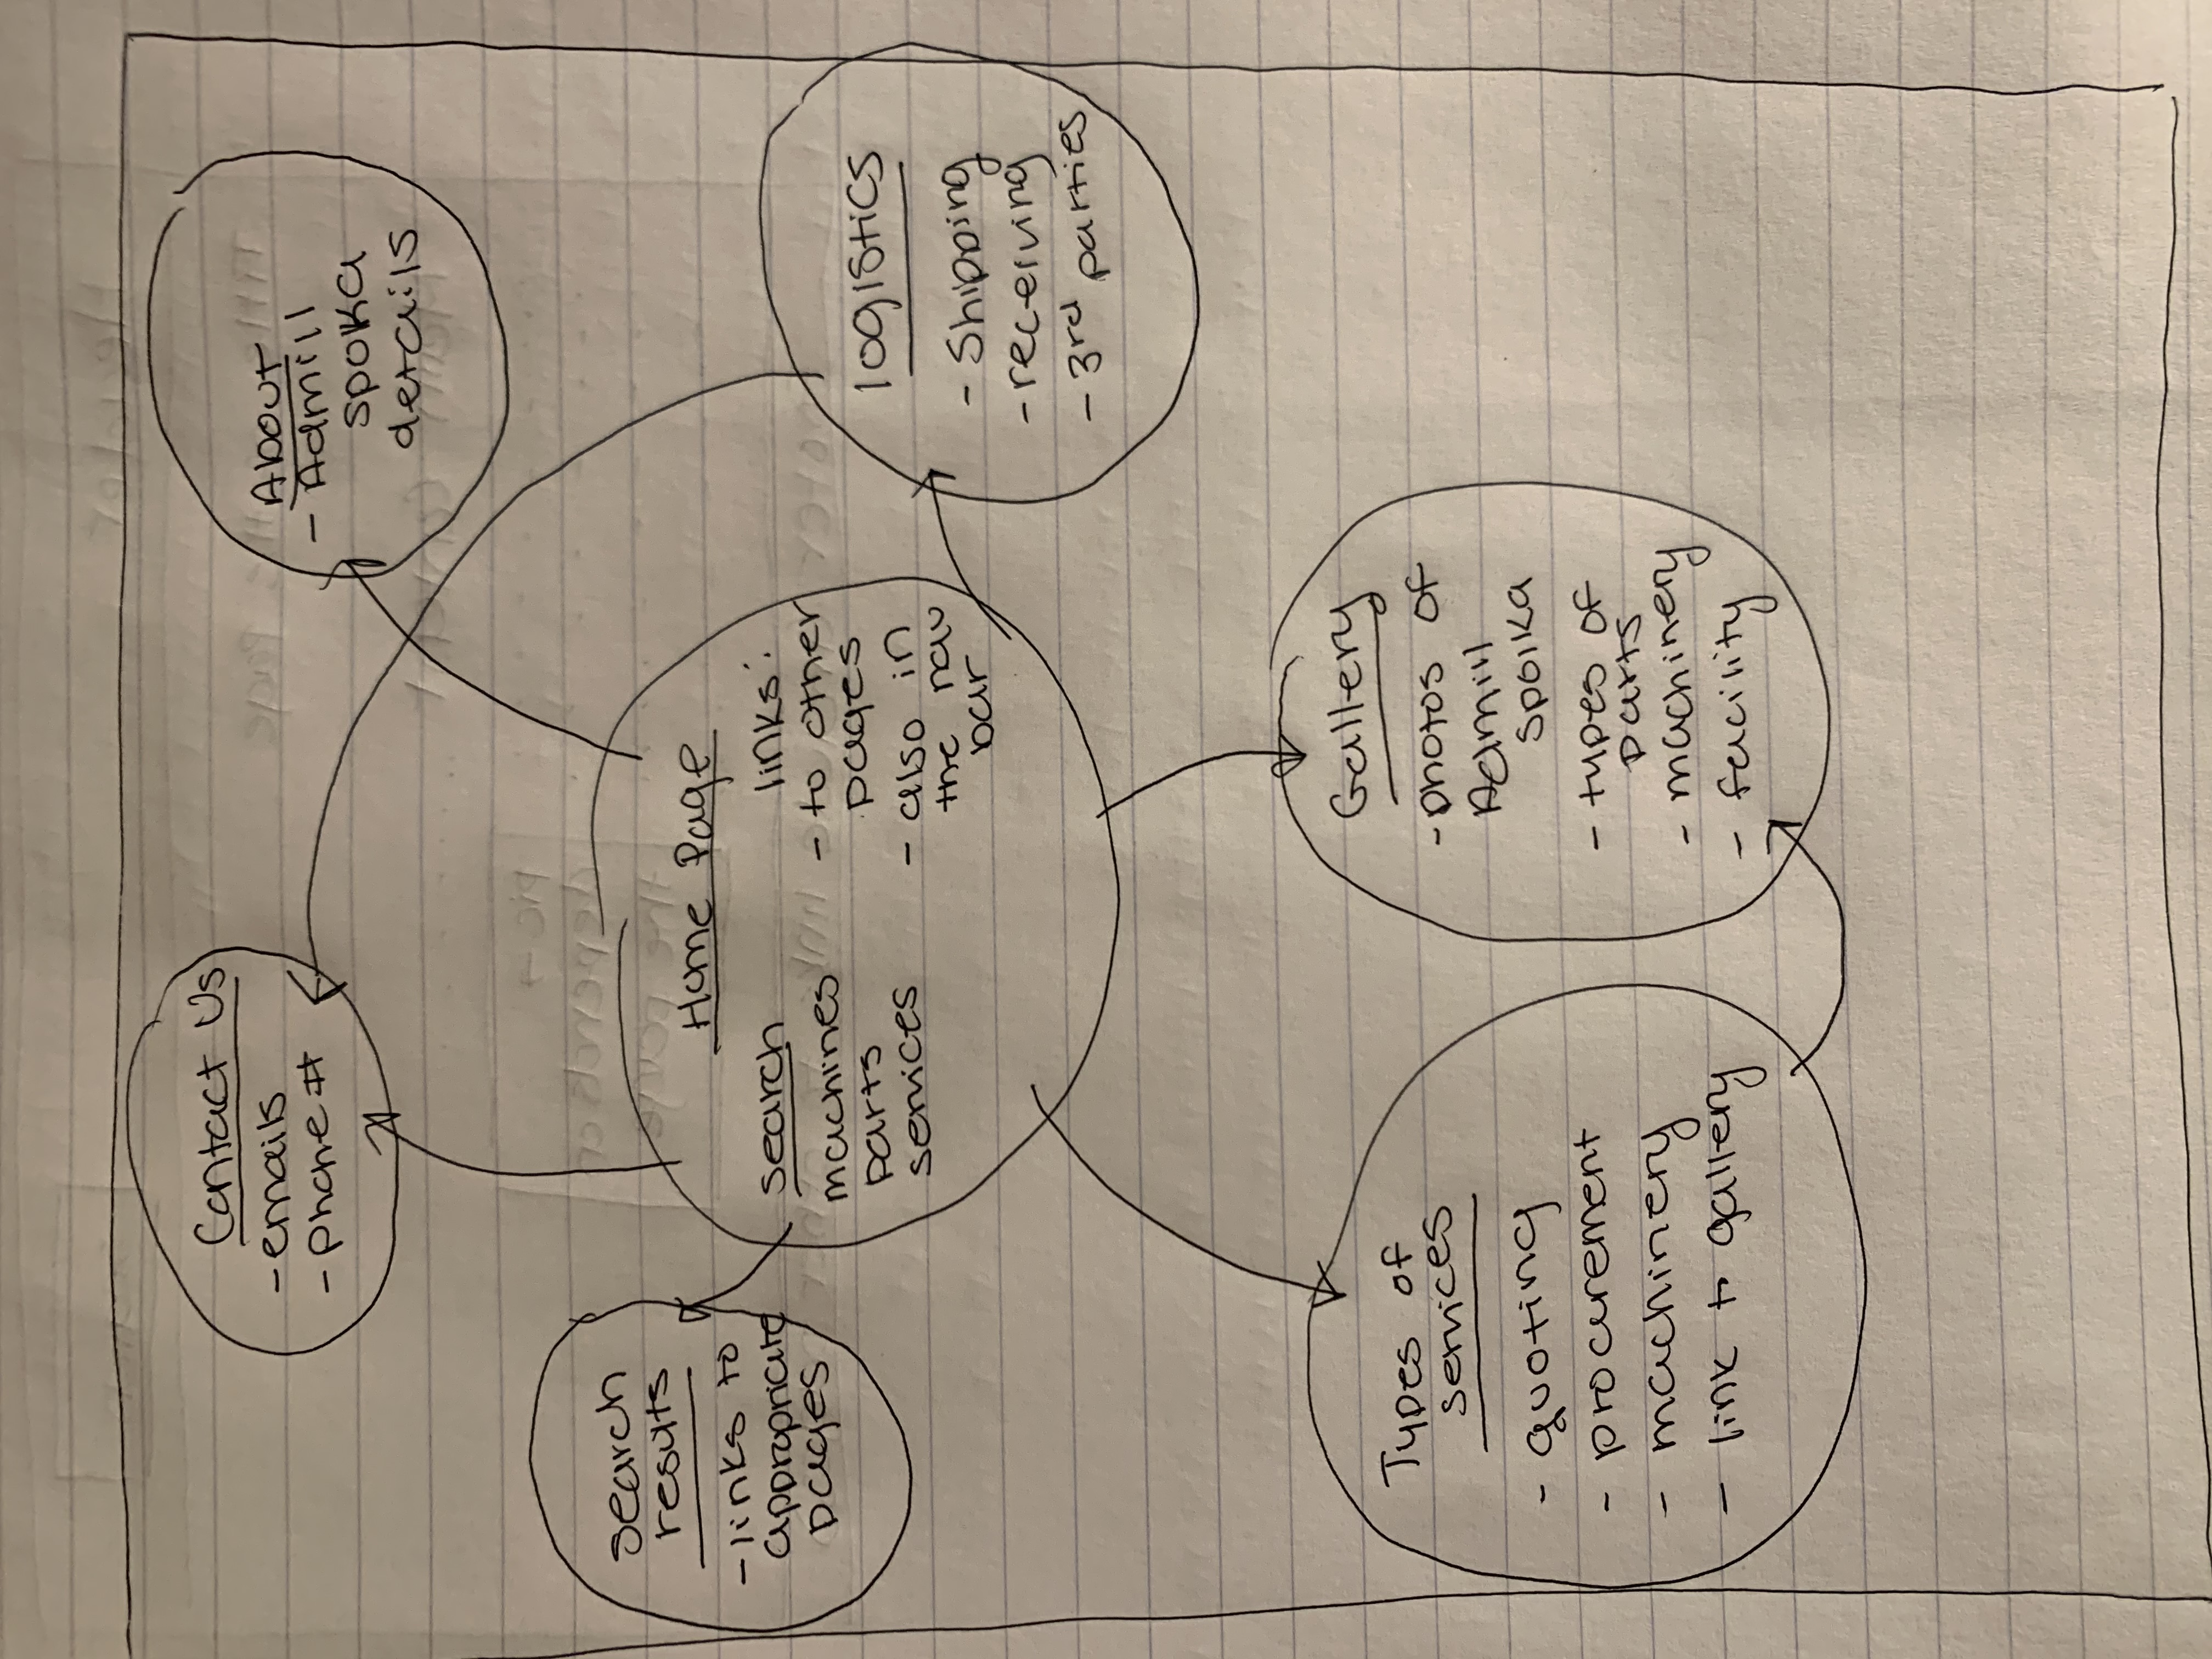 Contact Us
- emails
- Phone #
About
- Admill
spoka
details
search
results
- links to
appropriate
pages
Home Page
search
machines
parts
services
links:
- to other
pages
- also in
the nav
bar
logistics
- Shipping
- receiving
- 3rd parties
Types of
services
- quoting
- procurement
- machinery
- link to gallery
Gallery
- photos of
Admill
spolka
- types of
parts
- machinery
- facility